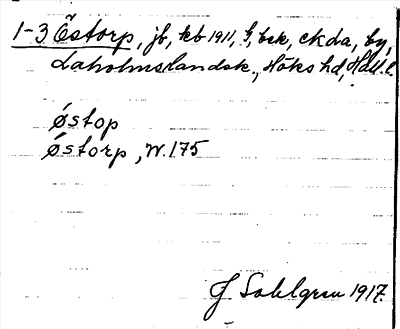 1-3 Östorp, jb, kb 1911, bsk, ckda, by,
Laholms landsk., Höks hd, Hall. l.
Østop
Østorp, W. 175
J Sahlgren 1917.